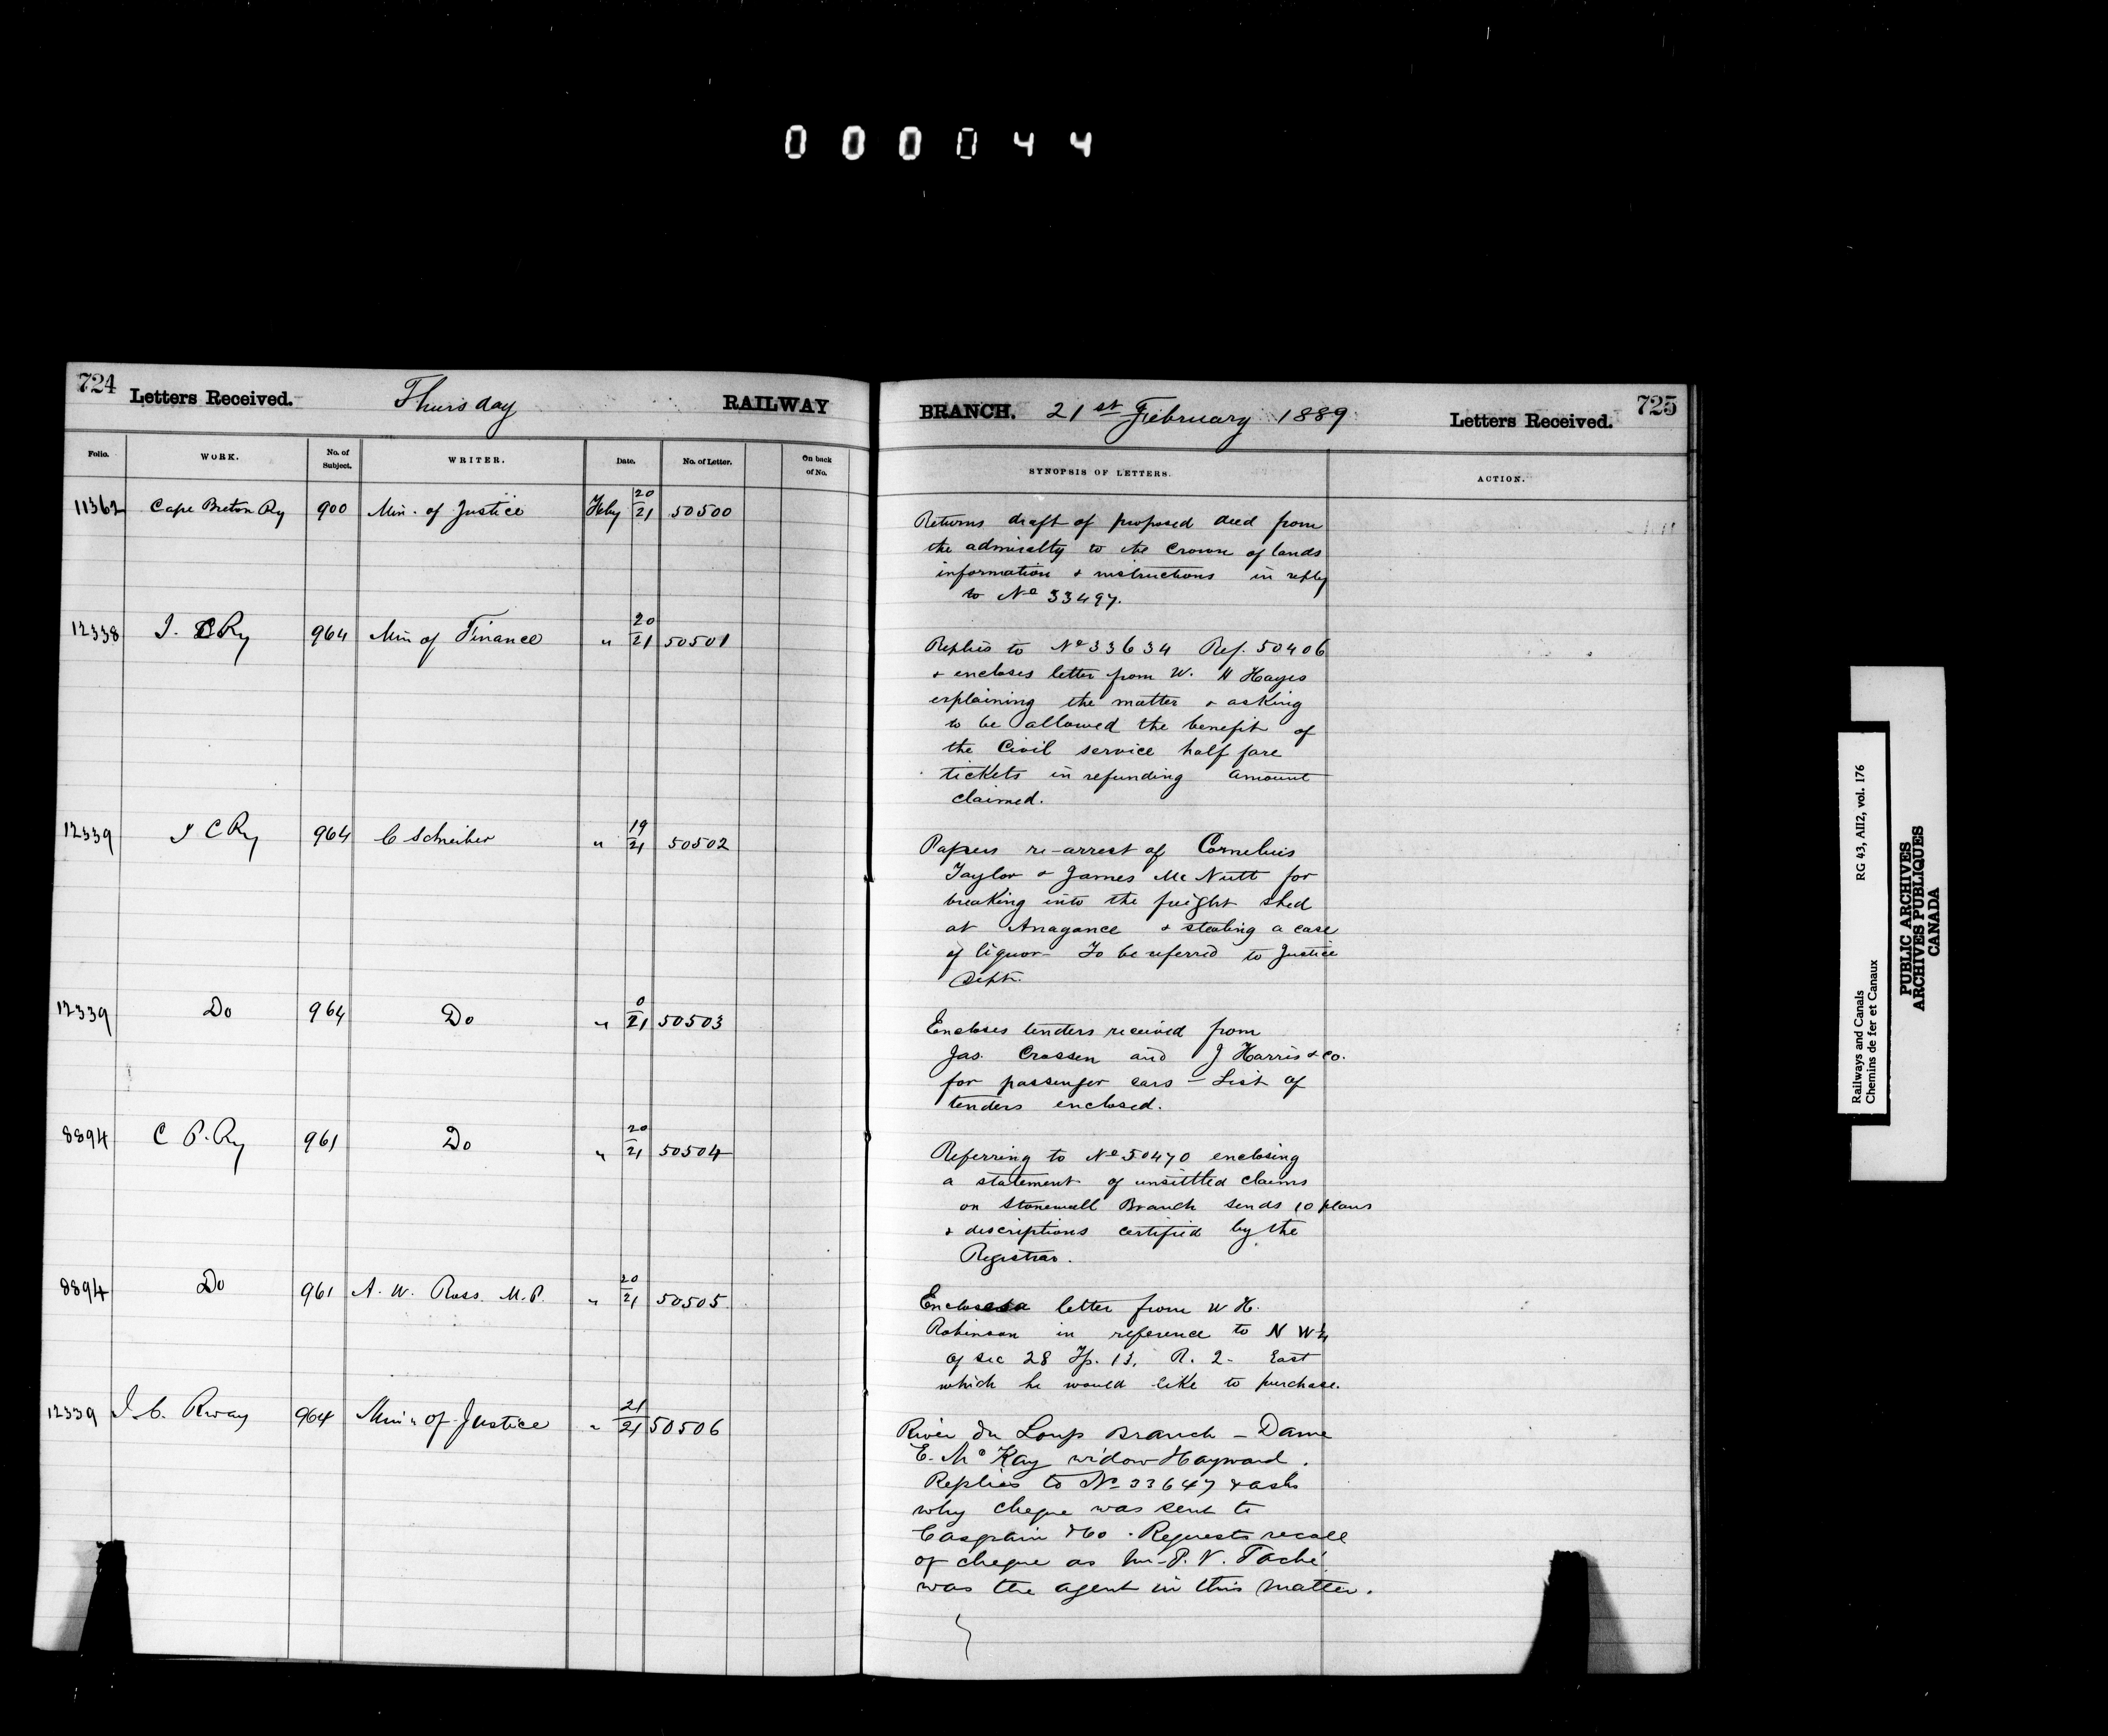 000044
724 Letters Received. Thursday RAILWAY
Folio. WORK. No. of Subject. WRITER. Date. No. of Letter. On back of No.
11362 Cape Breton Ry 900 Min. of Justice Feby 20/21 50500
12338 I. C Ry 964 Min of Finance " 20/21 50501
12339 I C Ry 964 C Schreiber " 19/21 50502
12339 Do 964 Do " 0/21 50503
8894 C P. Ry 961 Do " 20/21 50504
8894 Do 961 A. W. Ross. M.P. " 20/21 50505
12339 I. C. Rway 964 Min. of Justice " 21/21 50506
BRANCH. 21st February 1889 Letters Received. 725
SYNOPSIS OF LETTERS. ACTION.
Returns draft of proposed deed from
the admiralty to the Crown of lands
information & instructions in reply
to No 33497.
Replies to No 33634 Ref. 50406
& encloses letter from W. H Hayes
explaining the matter & asking
to be allowed the benefit of
the Civil service half fare
tickets in refunding amount
claimed.
Papers re-arrest of Cornelius
Taylor & James Mc Nutt for
breaking into the freight shed
at Anagance & stealing a case
of liquor - To be referred to Justice
Dept.
Encloses tenders received from
Jas. Crossen and J Harris & Co.
for passenger cars - List of
tenders enclosed.
Referring to No 50470 enclosing
a statement of unsettled claims
on Stonewall Branch sends 10 plans
& descriptions certified by the
Registrar.
Encloses a letter from W H.
Robinson in reference to N W 1/4
of sec 28 Tp. 13, R. 2. East
which he would like to purchase.
River du Loup Branch - Dame
E. McKay widow Hayward.
Replies to No 33647 & asks
why cheque was sent to
Casgrain & Co. Requests recall
of cheque as Mr. P. V. Taché
was the agent in this matter.
Railways and Canals RG 43, AII2, vol. 176
Chemins de fer et Canaux
PUBLIC ARCHIVES
ARCHIVES PUBLIQUES
CANADA